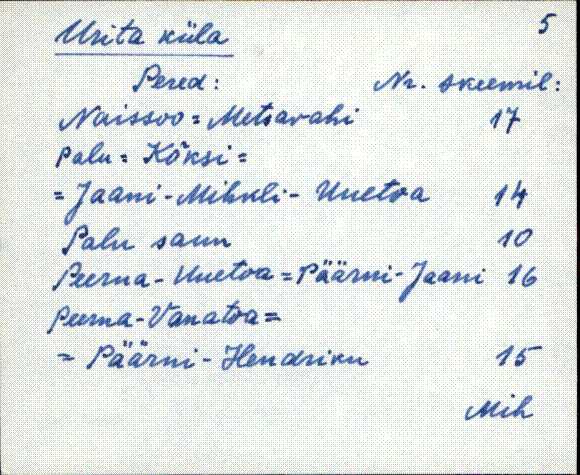 5
Urita küla
Pered: Nr. skeemil:
Naissoo = Metsavahi 17
Palu = Kõksi =
= Jaani - Mihkli - Uuetoa 14
Palu saun 10
Peerna - Uuetoa = Päärni - Jaani 16
Peerna - Vanatoa =
= Päärni - Hendriku 15
Mih